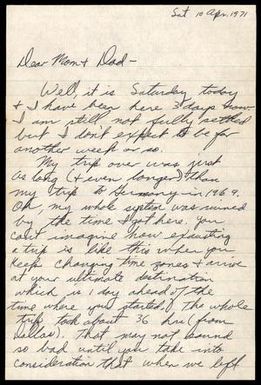 Sat 10 Apr, 1971
Dear Mom & Dad -
Well, it is Saturday today
& I have been here 3 days now
I am still not fully settled
but I don't expect to be for
another week or so.
My trip over was just
as long (& even longer) than
my trip to Germany in 1969.
Oh my whole system was ruined
by the time I got here. You
can't imagine how exhausting
a trip is like this when you
keep changing time zones & arrive
at your ultimate destination
which is 1 day ahead of the
time where you started! The whole
trip took about 36 hrs (from
Dallas). That may not sound
so bad until you take into
consideration that when we left